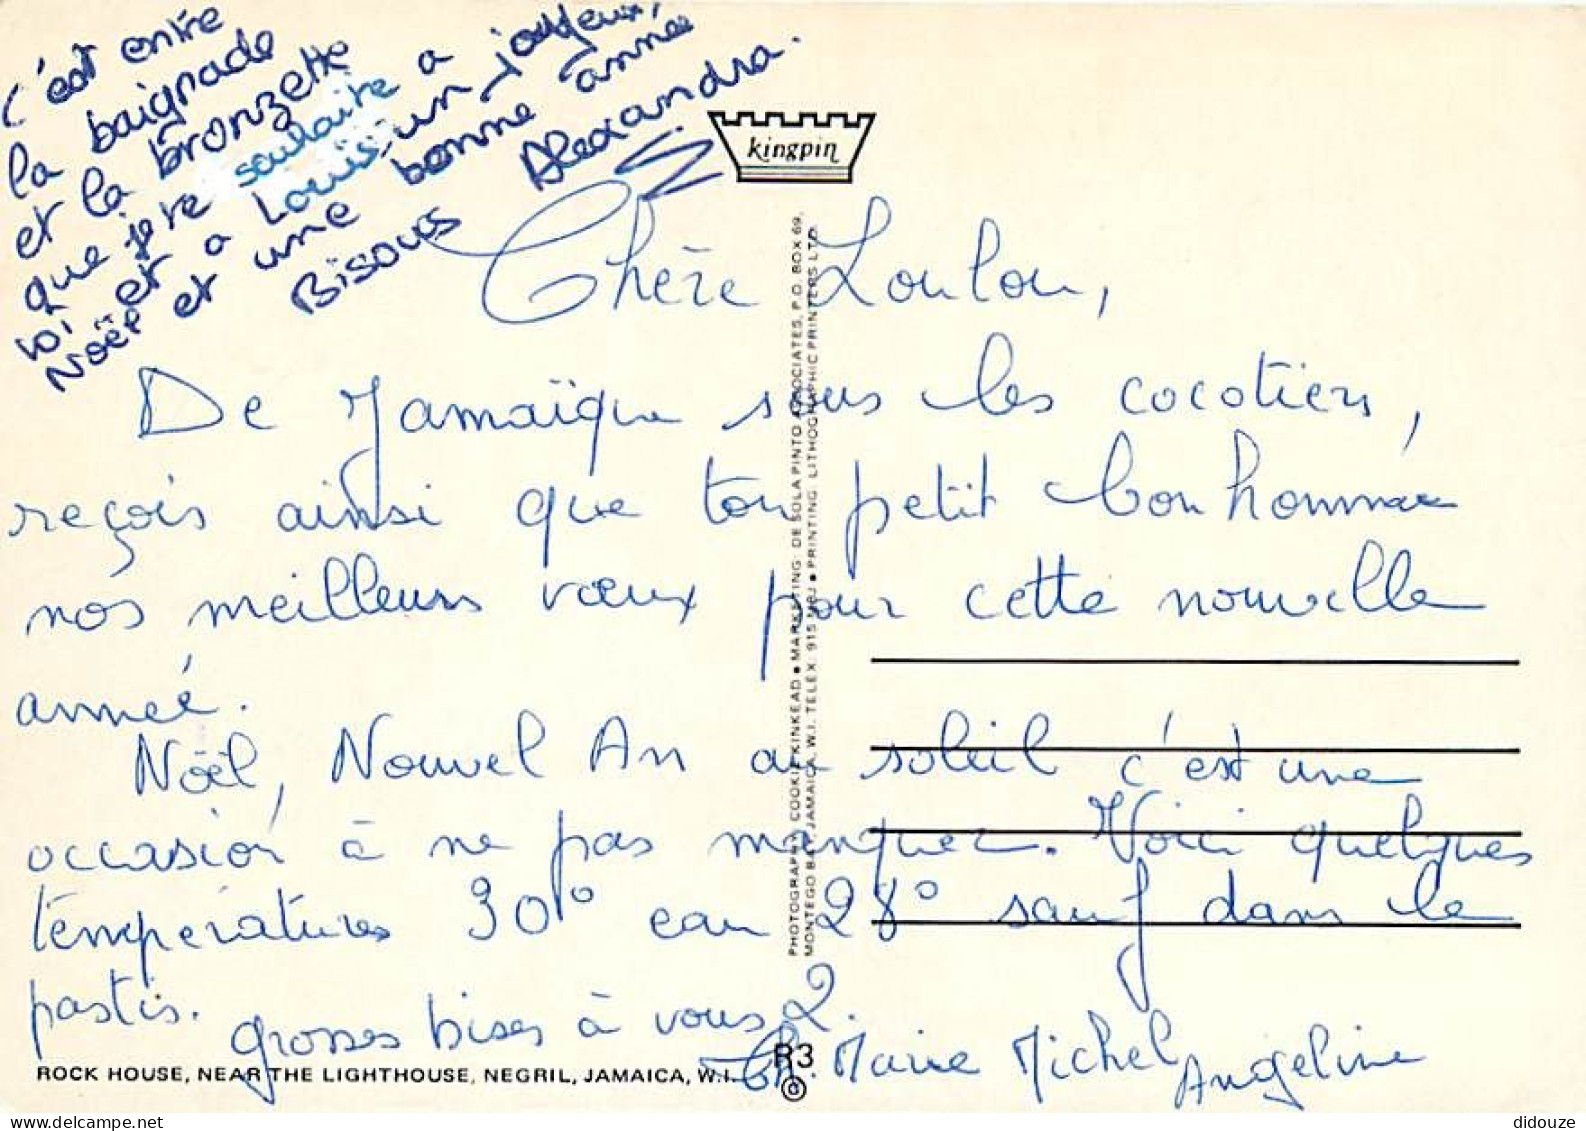 c'est entre
la baignade
et la bronzette
que je te souhaite a
toi et a Louis un joyeux
Noël et une bonne année
Bisous Alexandra.
kingpin
Chère Loulou,
De Jamaïque sous les cocotiers,
reçois ainsi que ton petit bonhomme
nos meilleurs vœux pour cette nouvelle
année.
Noël, Nouvel An au soleil c'est une
occasion à ne pas manquer. Voici quelques
températures 30° eau 28° sauf dans le
pastis.
grosses bises à vous 2.
Ch. Marie Michel Angeline
PHOTOGRAPHY: COOKIE KINKEAD ● MARKETING: DE SOLA PINTO ASSOCIATES, P.O. BOX 69,
MONTEGO BAY, JAMAICA, W.I. TELEX: 915 MBJ ● PRINTING: LITHOGRAPHIC PRINTERS LTD.
R3
ROCK HOUSE, NEAR THE LIGHTHOUSE, NEGRIL, JAMAICA, W.I.
didouze